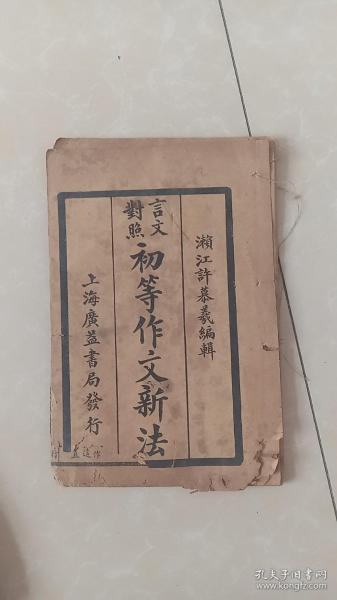 瀨江許慕羲編輯
言文
對照
初等作文新法
上海廣益書局發行
孔夫子旧书网
www.kongfz.com